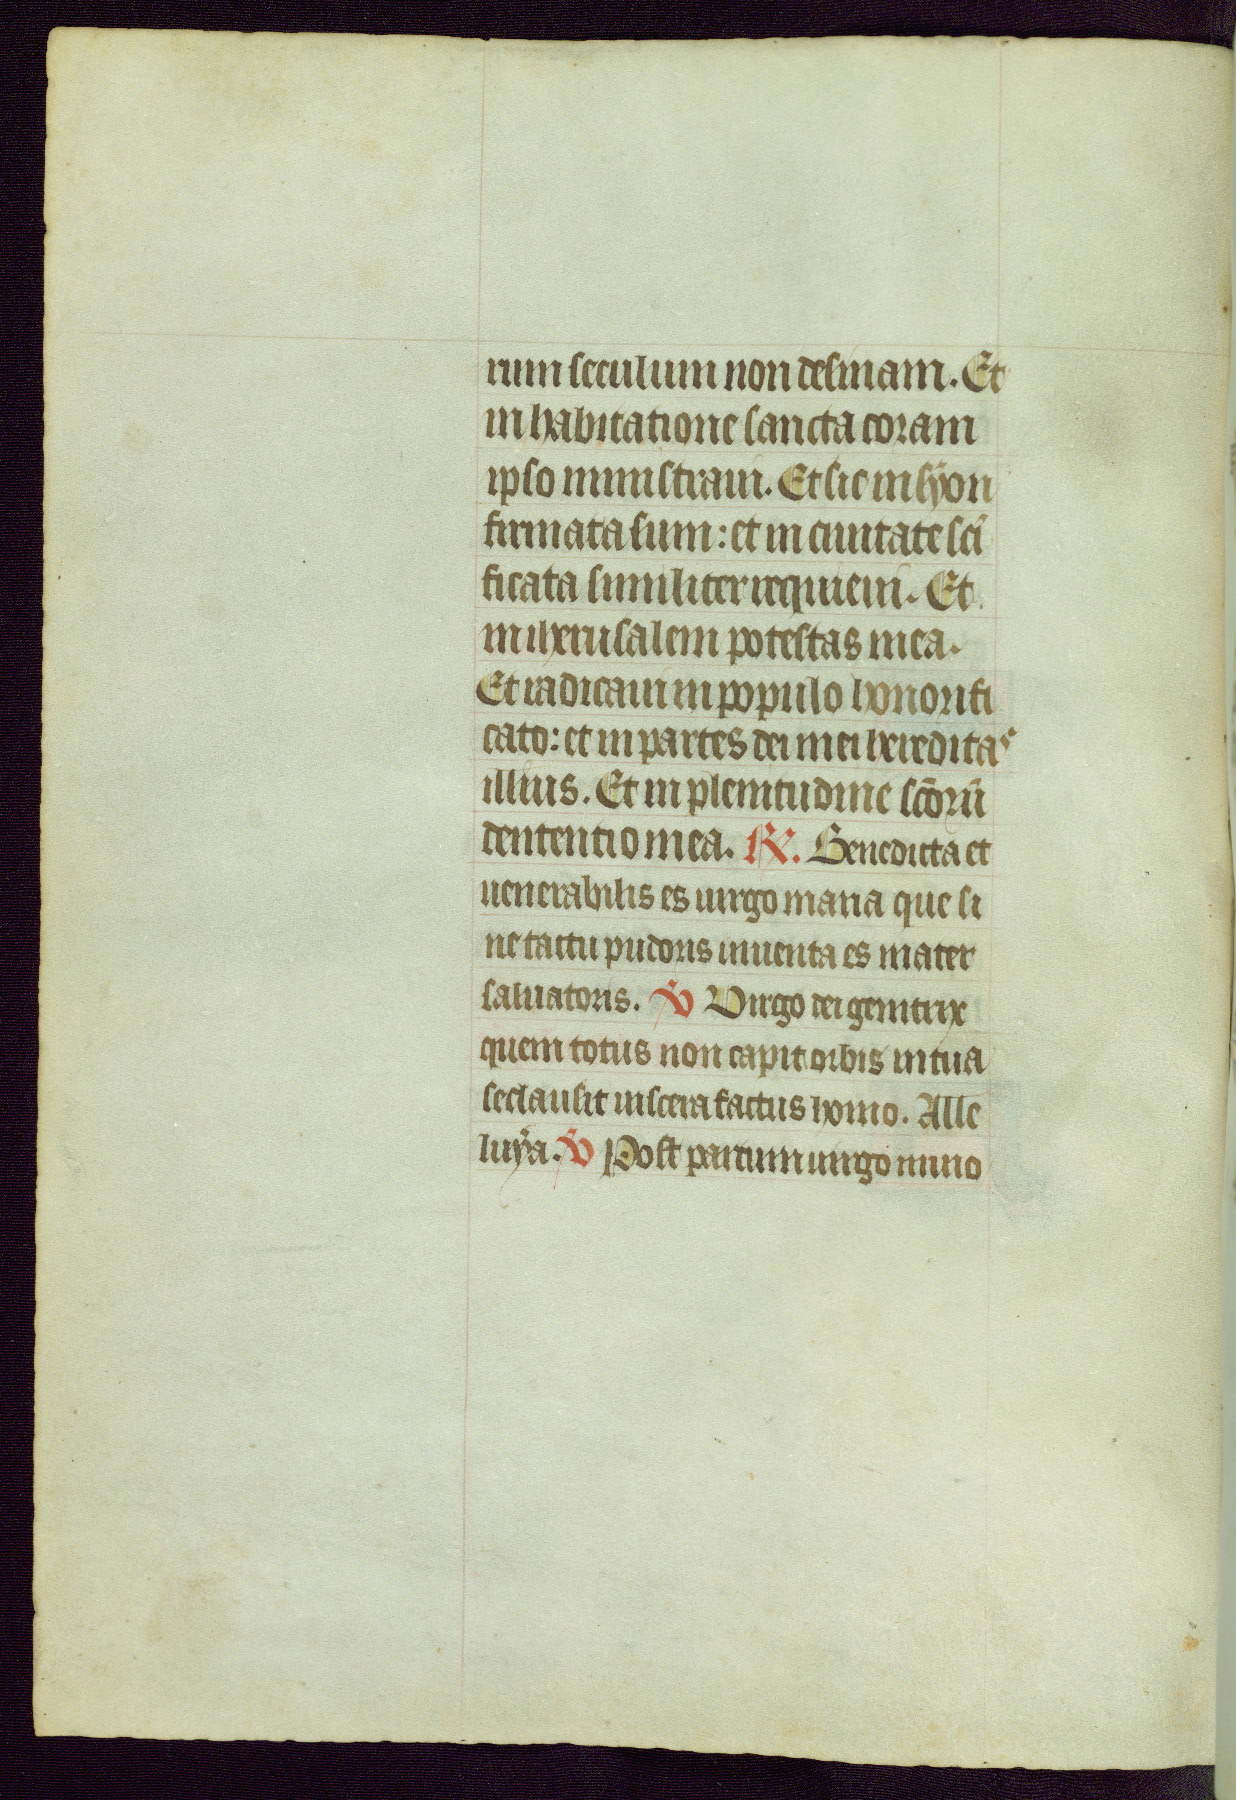 rum seculum non desinam. Et
in habitatione sancta coram
ipso ministraui. Et sic in syon
firmata sum: et in ciuitate sc̄i
ficata similiter requieui. Et
in iherusalem potestas mea.
Et radicaui in populo honorifi
cato: et in partes dei mei heredita⁹
illius. Et in plenitudine sc̄orū
dententio mea. R̷. Benedicta et
uenerabilis es uirgo maria que si
ne tactu pudoris inuenta es mater
saluatoris. V̷ Virgo dei genitrix
quem totus non capit orbis in tua
se clausit uiscera factus homo. Alle
luya. V̷ Post partum uirgo inuio